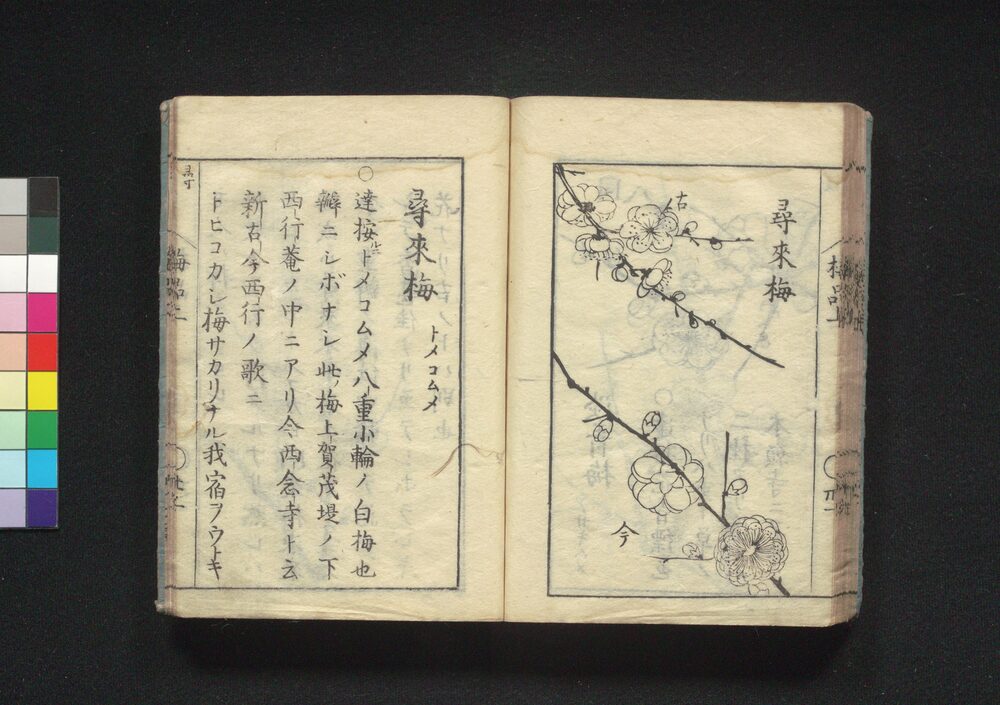 尋來梅
古
今
尋來梅
トメコムメ
○達按ルニトメコムメ八重小輪ノ白梅也
瓣ニシボナシ此梅上賀茂堤ノ下
西行菴ノ中ニアリ今西念寺ト云
新古今西行ノ歌ニ
トヒコカシ梅サカリナル我宿ヲウトキ